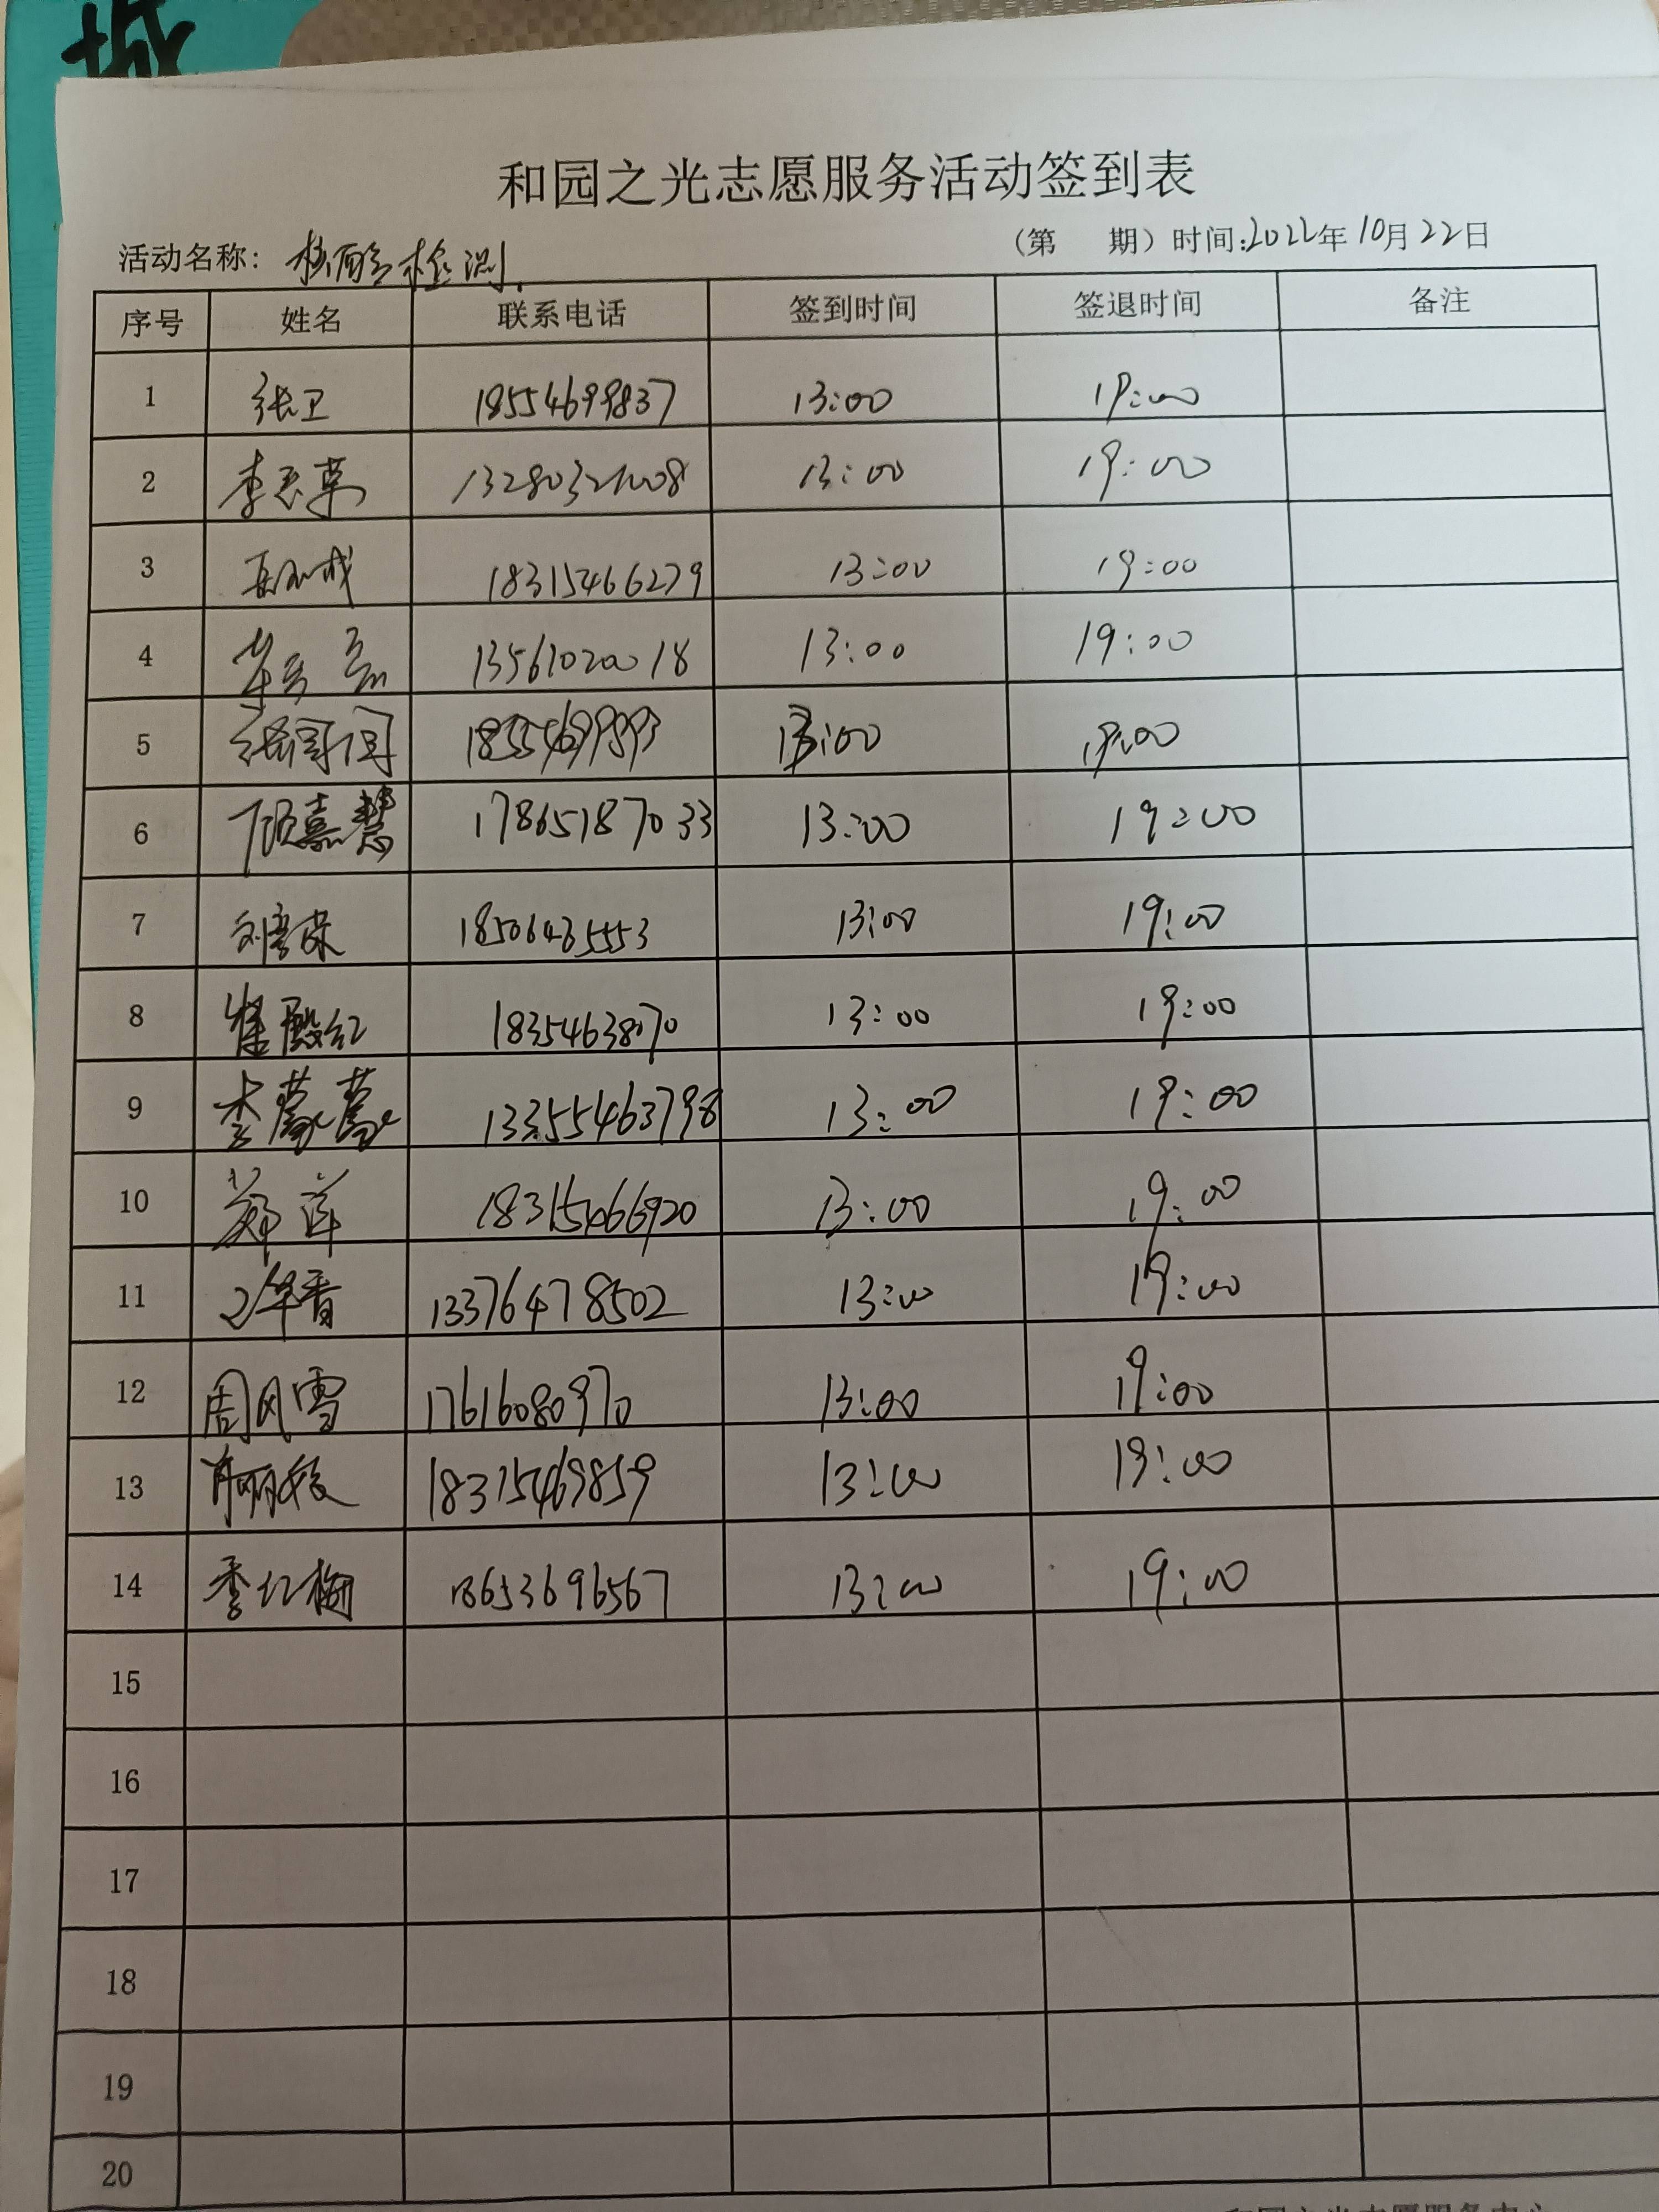 城
和园之光志愿服务活动签到表
活动名称: 核酸检测. (第 期) 时间:2022年10月22日
序号 姓名 联系电话 签到时间 签退时间 备注
1 张卫 18554699837 13:00 19:00
2 13280321008 13:00 19:00
3 18315466279 13:00 19:00
4 13561020018 13:00 19:00
5 13:00 19:00
6 顾嘉慧 17865187033 13:00 19:00
7 18506435553 13:00 19:00
8 崔殿红 18354638070 13:00 19:00
9 李蒙蒙 13355463798 13:00 19:00
10 郑莲 18315466920 13:00 19:00
11 13376478502 13:00 19:00
12 周风雪 17616080970 13:00 19:00
13 18315469859 13:00 19:00
14 季红梅 18653696567 13:00 19:00
15
16
17
18
19
20
和园之光志愿服务中心